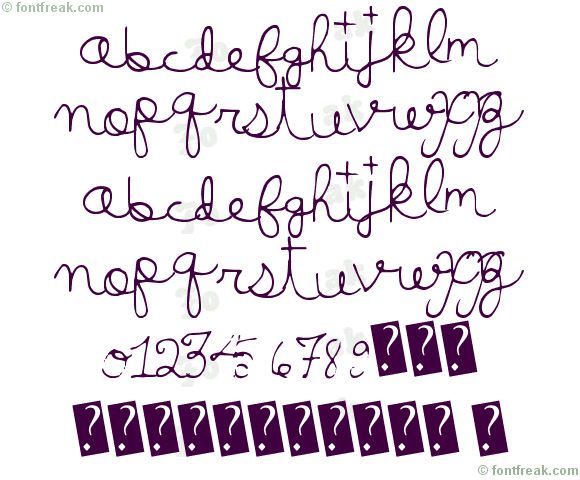 © fontfreak.com
abcdefghijklm
nopqrstuvwxyz
abcdefghijklm
nopqrstuvwxyz
0123456789???
????????????
© fontfreak.com